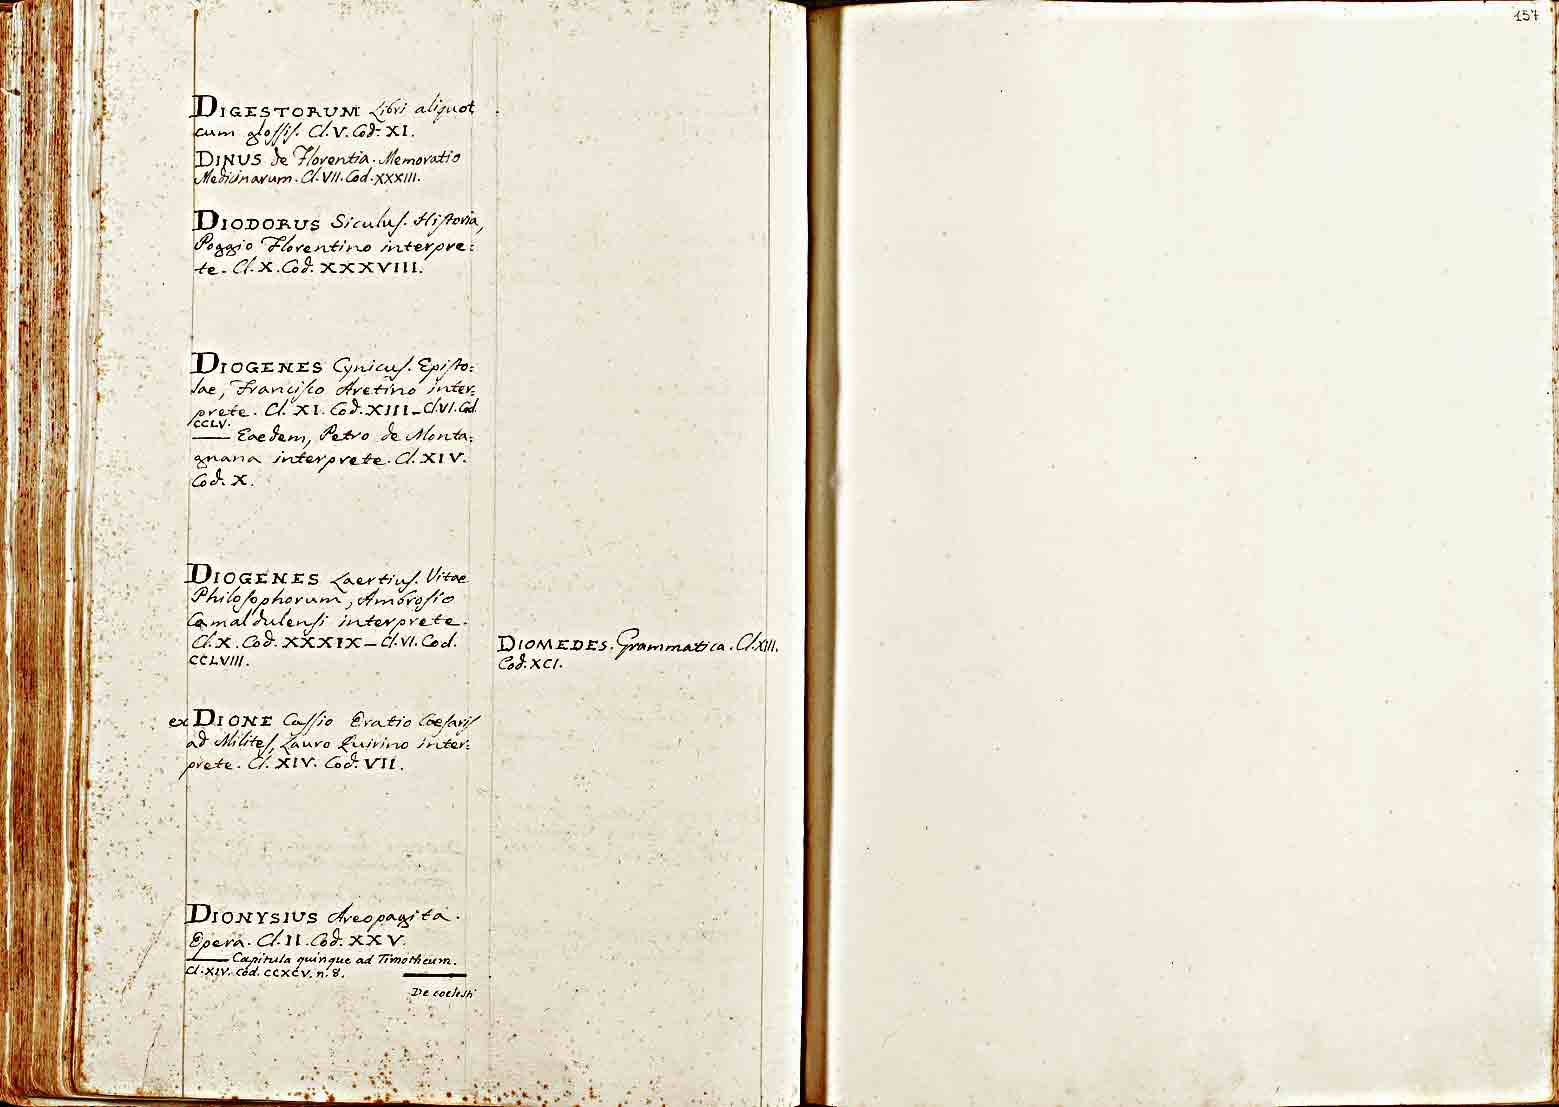 157
DIGESTORUM Libri aliquot
cum glossis. Cl. V. Cod. XI.
DINUS de Florentia. Memoratio
Medicinarum. Cl. VII. Cod. XXXIII.
DIODORUS Siculus. Historia,
Poggio Florentino interpre:
te. Cl. X. Cod. XXXVIII.
DIOGENES Cynicus. Episto:
lae, Francisco Aretino inter:
prete. Cl. XI. Cod. XIII – Cl. VI. Cod.
CCLV.
—— Eaedem, Petro de Monta:
gnana interprete. Cl. XIV.
Cod. X.
DIOGENES Laertius. Vitae
Philosophorum, Ambrosio
Camaldulensi interprete.
Cl. X. Cod. XXXIX – Cl. VI. Cod.
CCLVIII.
ex DIONE Cassio Oratio Caesaris
ad Milites, Lauro Quirino inter:
prete. Cl. XIV. Cod. VII.
DIONYSIUS Areopagita.
Opera. Cl. II. Cod. XXV.
—— Capitula quinque ad Timotheum.
Cl. XIV. Cod. CCXCV. n. 8.
De coelesti
DIOMEDES. Grammatica. Cl. XIII.
Cod. XCI.